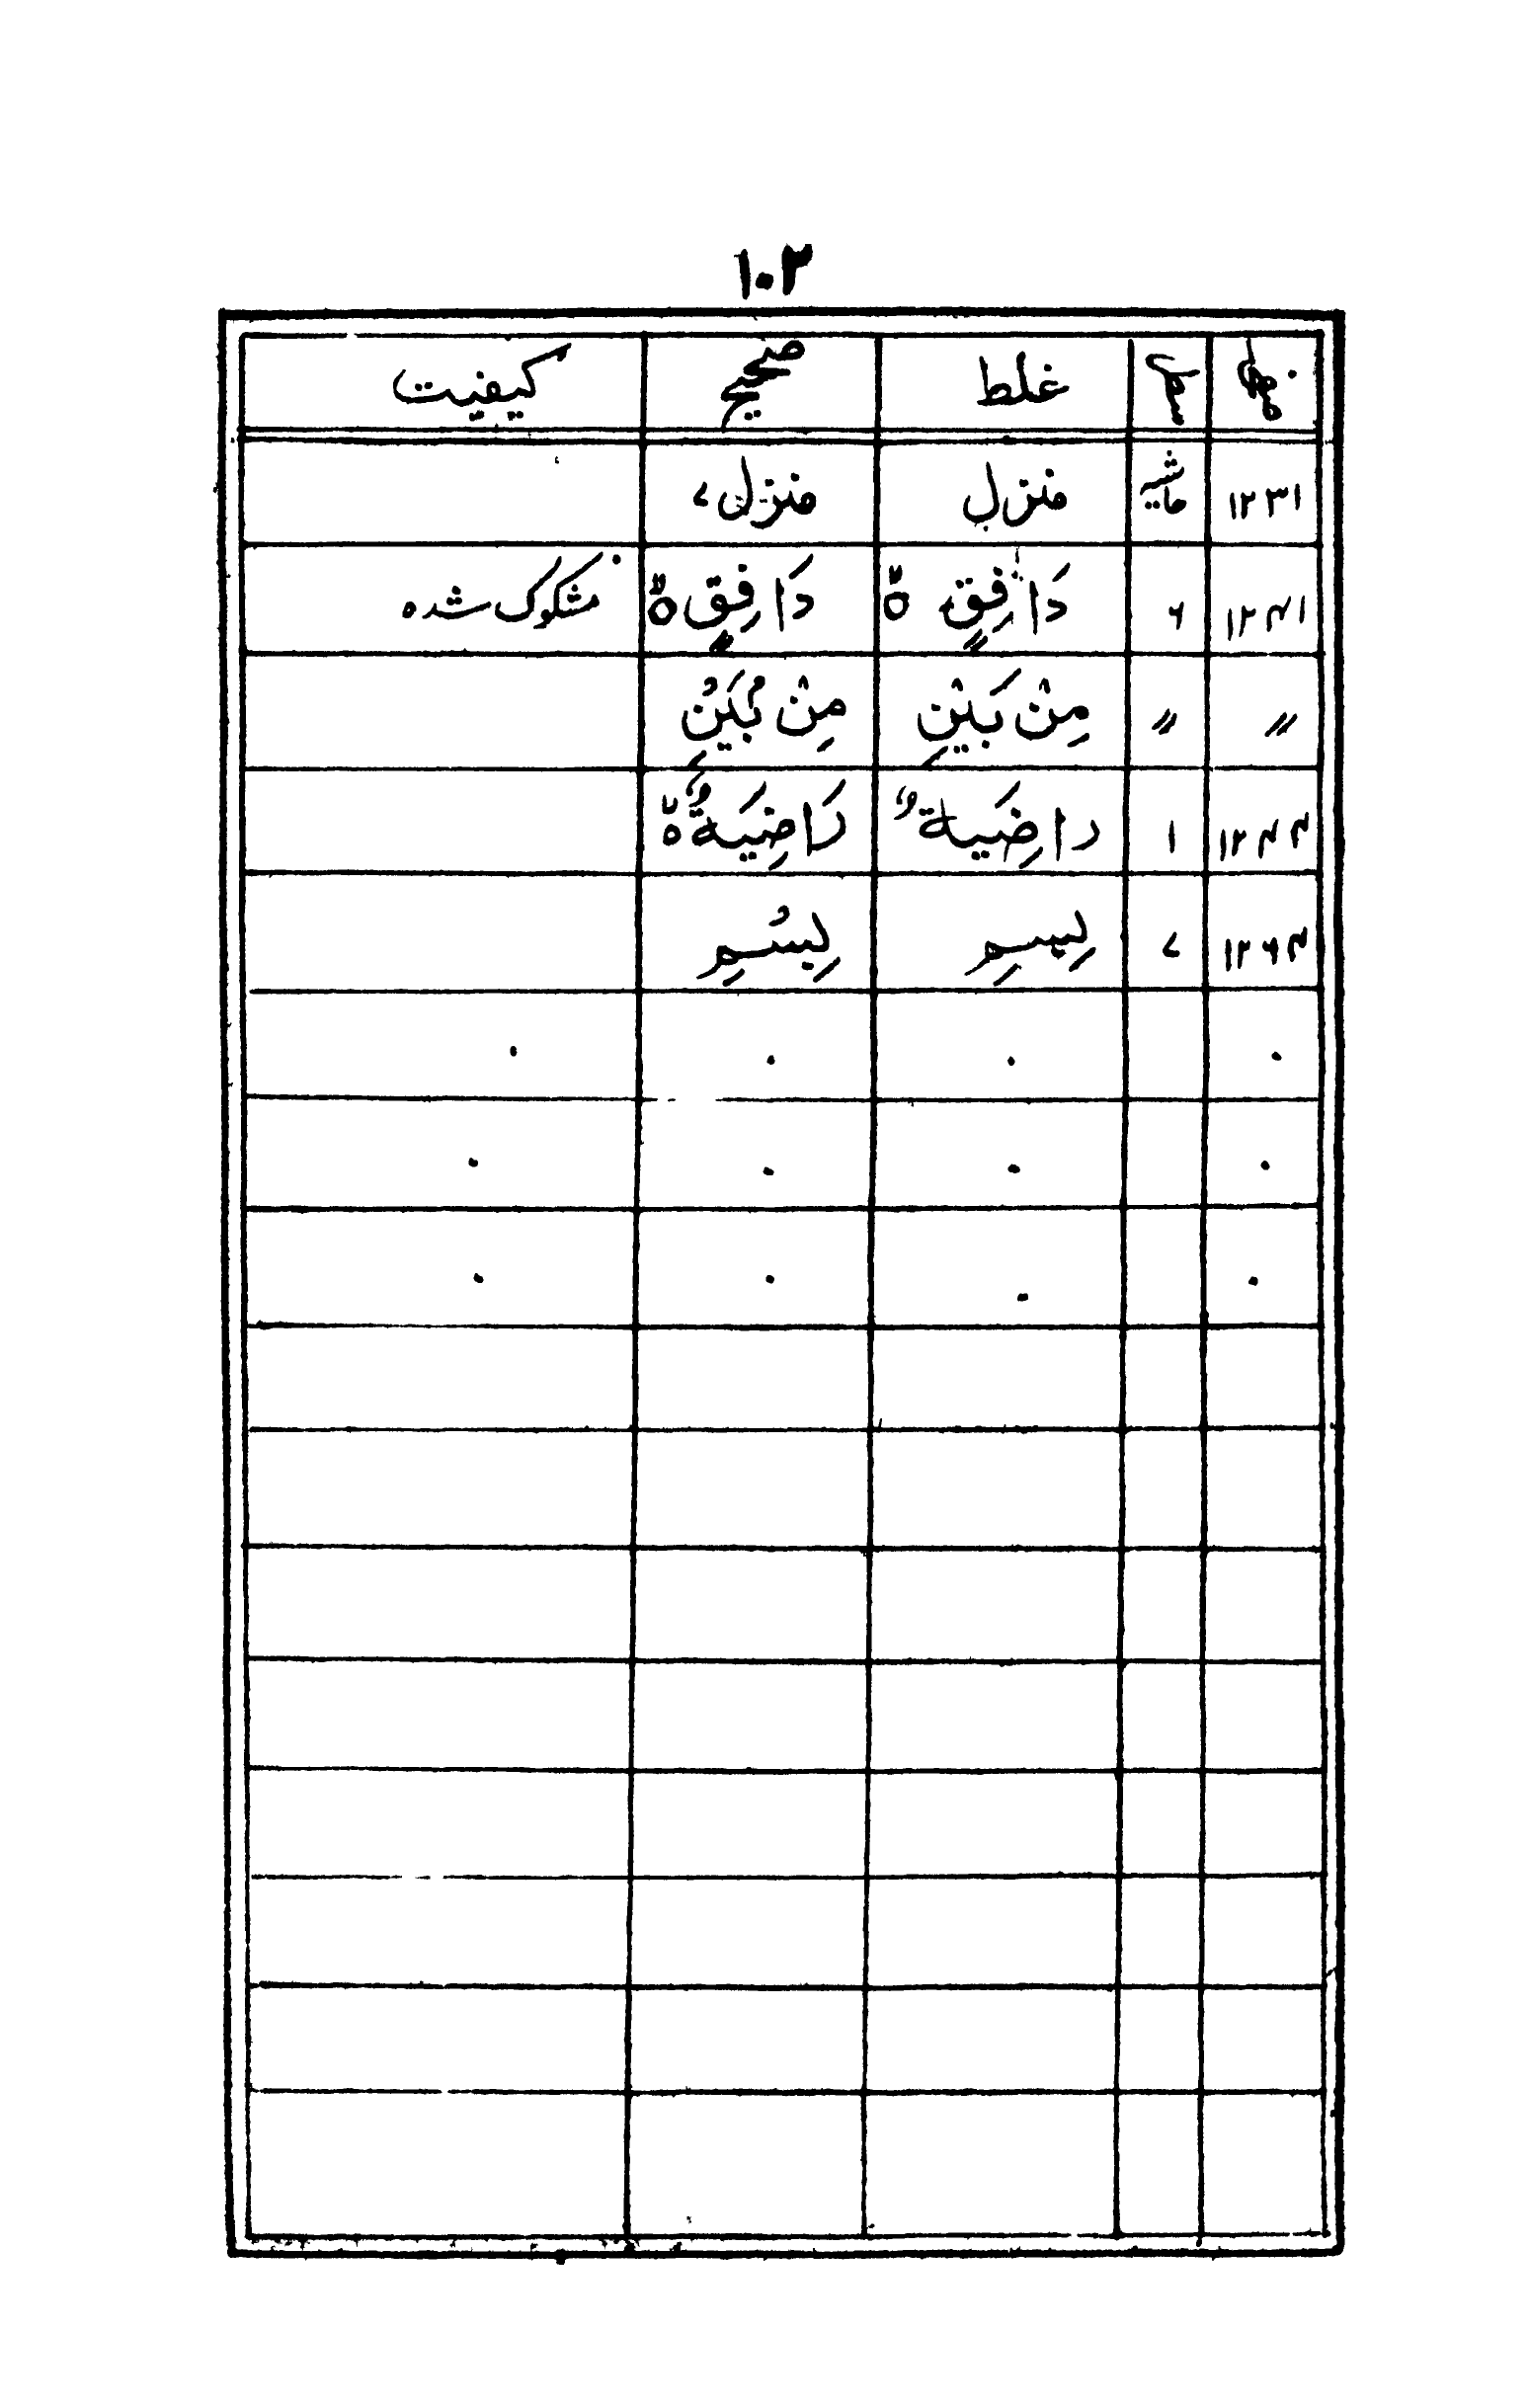 ۱۰۳
نمبر صفحہ سطر غلط صحیح کیفیت
۱۲۳۱ حاشیہ منزل منزل ۷
۱۲۴۱ ۶ دَافِقٍ ہٌ دَافِقٍ ہٌ مشکوک شدہ
〃 〃 مِنْ بَيْنِ مِنْۢ بَيْنِ
۱۲۴۴ ۱ رَاضِيَةً رَاضِيَةً ہ
۱۲۶۴ ۷ بِسِمِ بِسْمِ